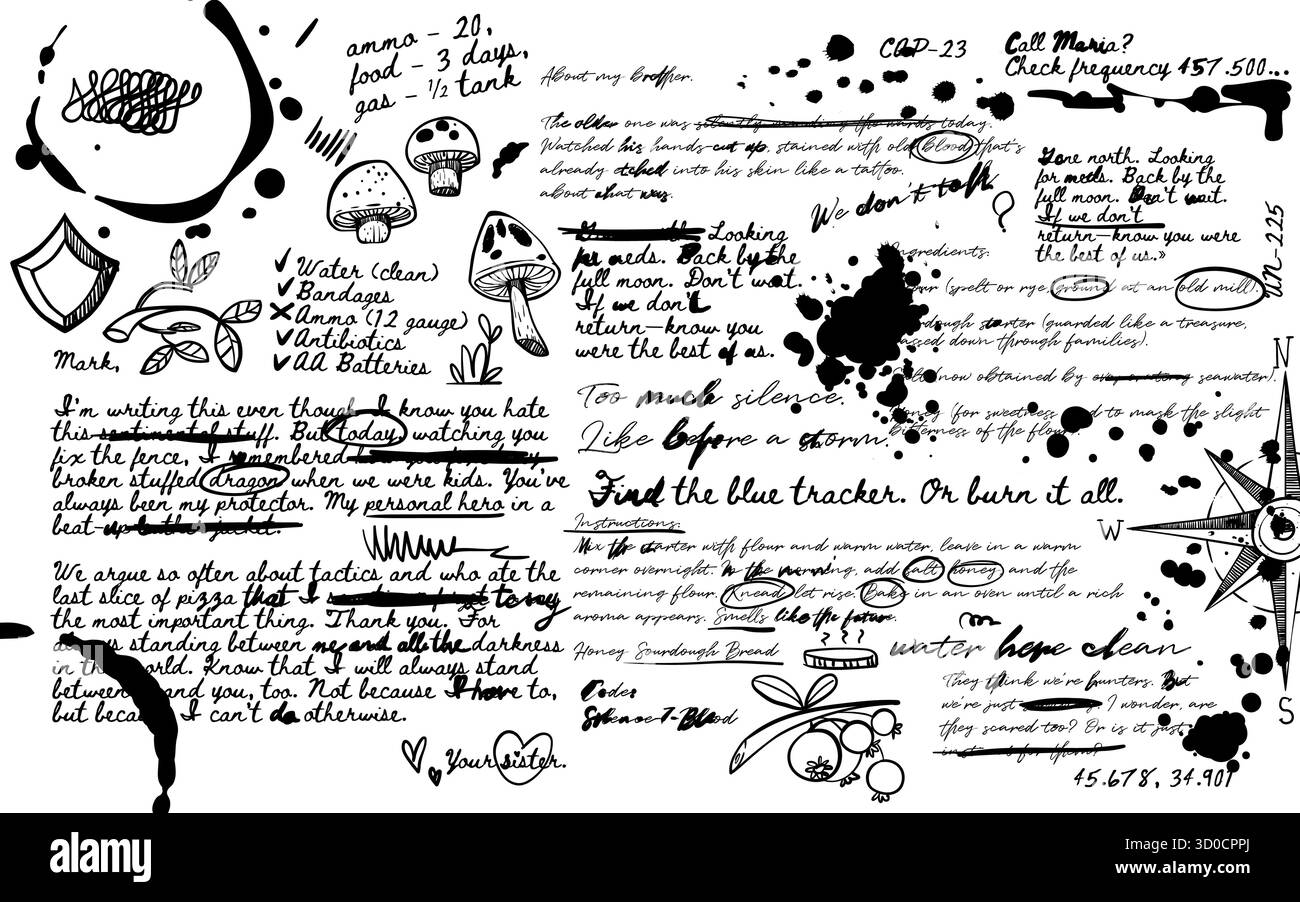 ammo – 20,
food – 3 days,
gas – ½ tank
About my brother.
The older one was silently wandering the wards today.
Watched his hands cut up, stained with old blood that's
already etched into his skin like a tattoo.
about what was.
We don't talk
?
COD-23
Call Maria?
Check frequency 457.500...
Gone north. Looking
for meds. Back by the
full moon. Don't wait.
If we don't
return—know you were
the best of us.»
UN-225
✓ Water (clean)
✓ Bandages
✗ Ammo (12 gauge)
✓ Antibiotics
✓ AA Batteries
Looking
for meds. Back by the
full moon. Don't wait.
If we don't
return—know you
were the best of us.
Too much silence.
Like before a storm.
Ingredients:
(spelt or rye, ground at an old mill).
starter (guarded like a treasure,
down through families).
(now obtained by seawater).
(for sweetness to mask the slight
bitterness of the
Find the blue tracker. Or burn it all.
Mark,
I'm writing this even though I know you hate
this sentimental stuff. But today, watching you
fix the fence, I remembered
broken stuffed dragon when we were kids. You've
always been my protector. My personal hero in a
beat-up leather jacket.
We argue so often about tactics and who ate the
last slice of pizza that I to say
the most important thing. Thank you. For
standing between me and all the darkness
in world. Know that I will always stand
between and you, too. Not because I have to,
but I can't do otherwise.
Your sister.
Instructions:
Mix the starter with flour and warm water, leave in a warm
corner overnight. In the morning, add salt honey and the
remaining flour. Knead let rise. Bake in an oven until a rich
aroma appears. Smells like the future.
Honey Sourdough Bread
Code:
Silence-7-Blood
water here clean
They think we're hunters. But
we're just I wonder, are
they scared too? Or is it just
instinct for them?
45.678, 34.901
N
W
S
alamy
Image ID: 3D0CPPJ
www.alamy.com